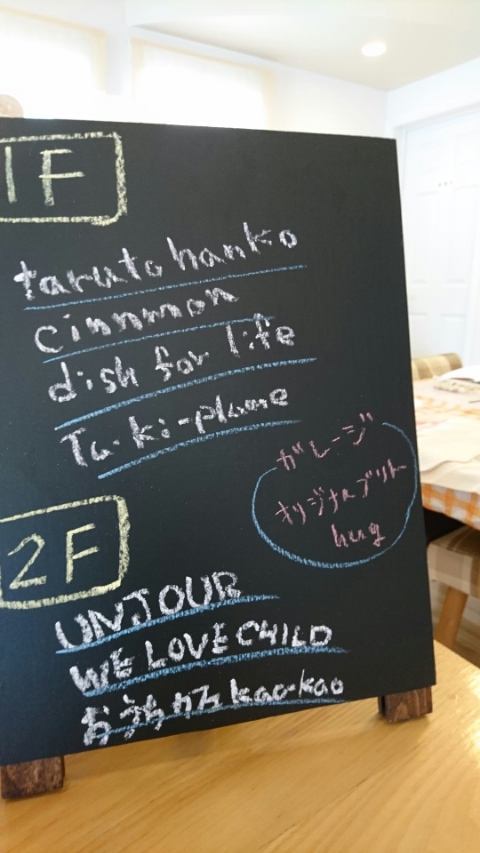 1F
taruto hanko
cinnmon
dish for life
Ta.ki-plame
ガレージ
オリジナルプリント
hug
2F
UNJOUR
WE LOVE CHILD
おうちカフェ kao-kao